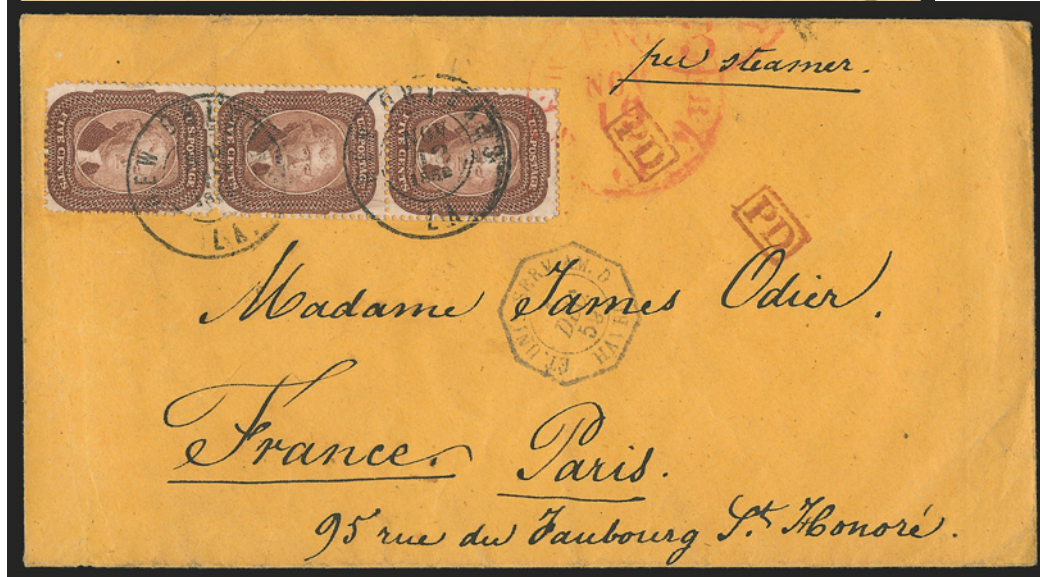 per steamer.
U.S. POSTAGE
FIVE CENTS
U.S. POSTAGE
FIVE CENTS
U.S. POSTAGE
FIVE CENTS
NEW
LA.
ORLEANS
LA.
PD
PD
ET. UNI. SERV. AM. D
HAVRE
DEC
58
Madame James Odier.
France. Paris.
95 rue du Faubourg St. Honoré.